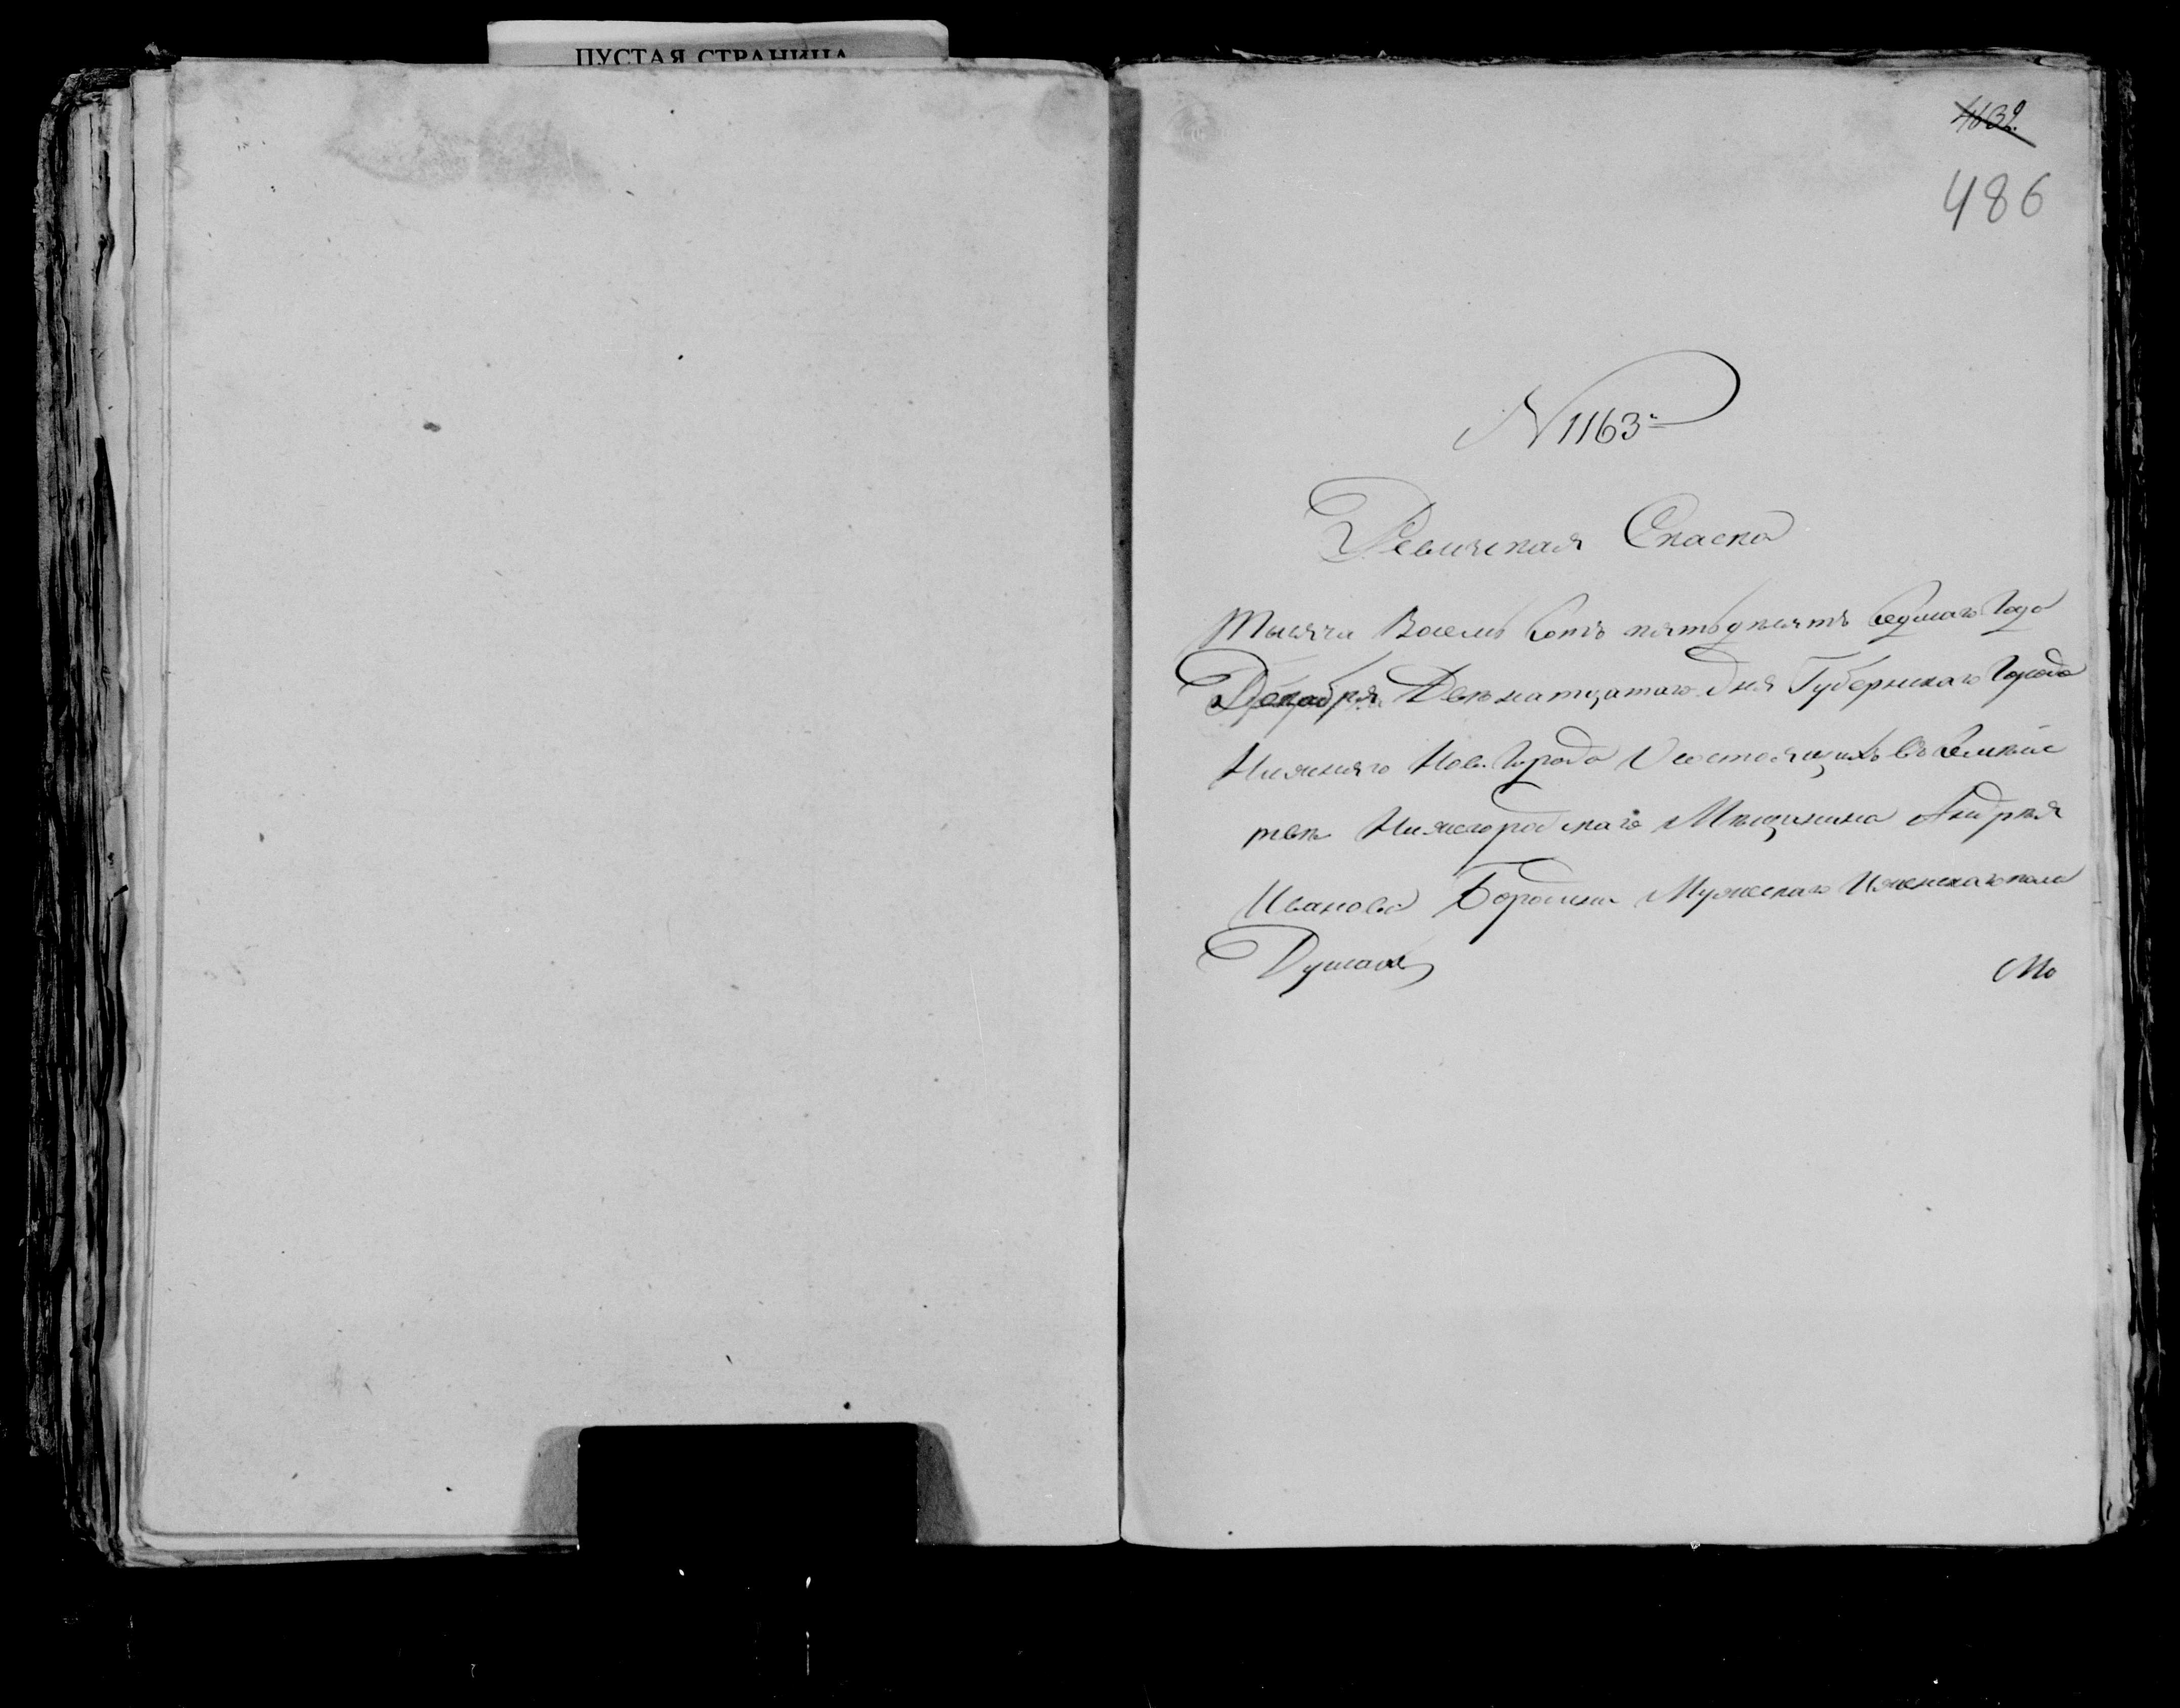 ПУСТАЯ СТРАНИЦА
486
N 1163
Ревиская Скаска
Тысяча Восемь сотъ пятьдѣсятъ седмаго Года
Декабря Двѣнатцатаго дня Губернскаго Города
Нижняго Нов. Города О состоящихъ въ семѣйс
твѣ Нижегородскаго Мѣщанина Андрѣя
Иванова Мужескаго Иженскаго пола
Душахъ